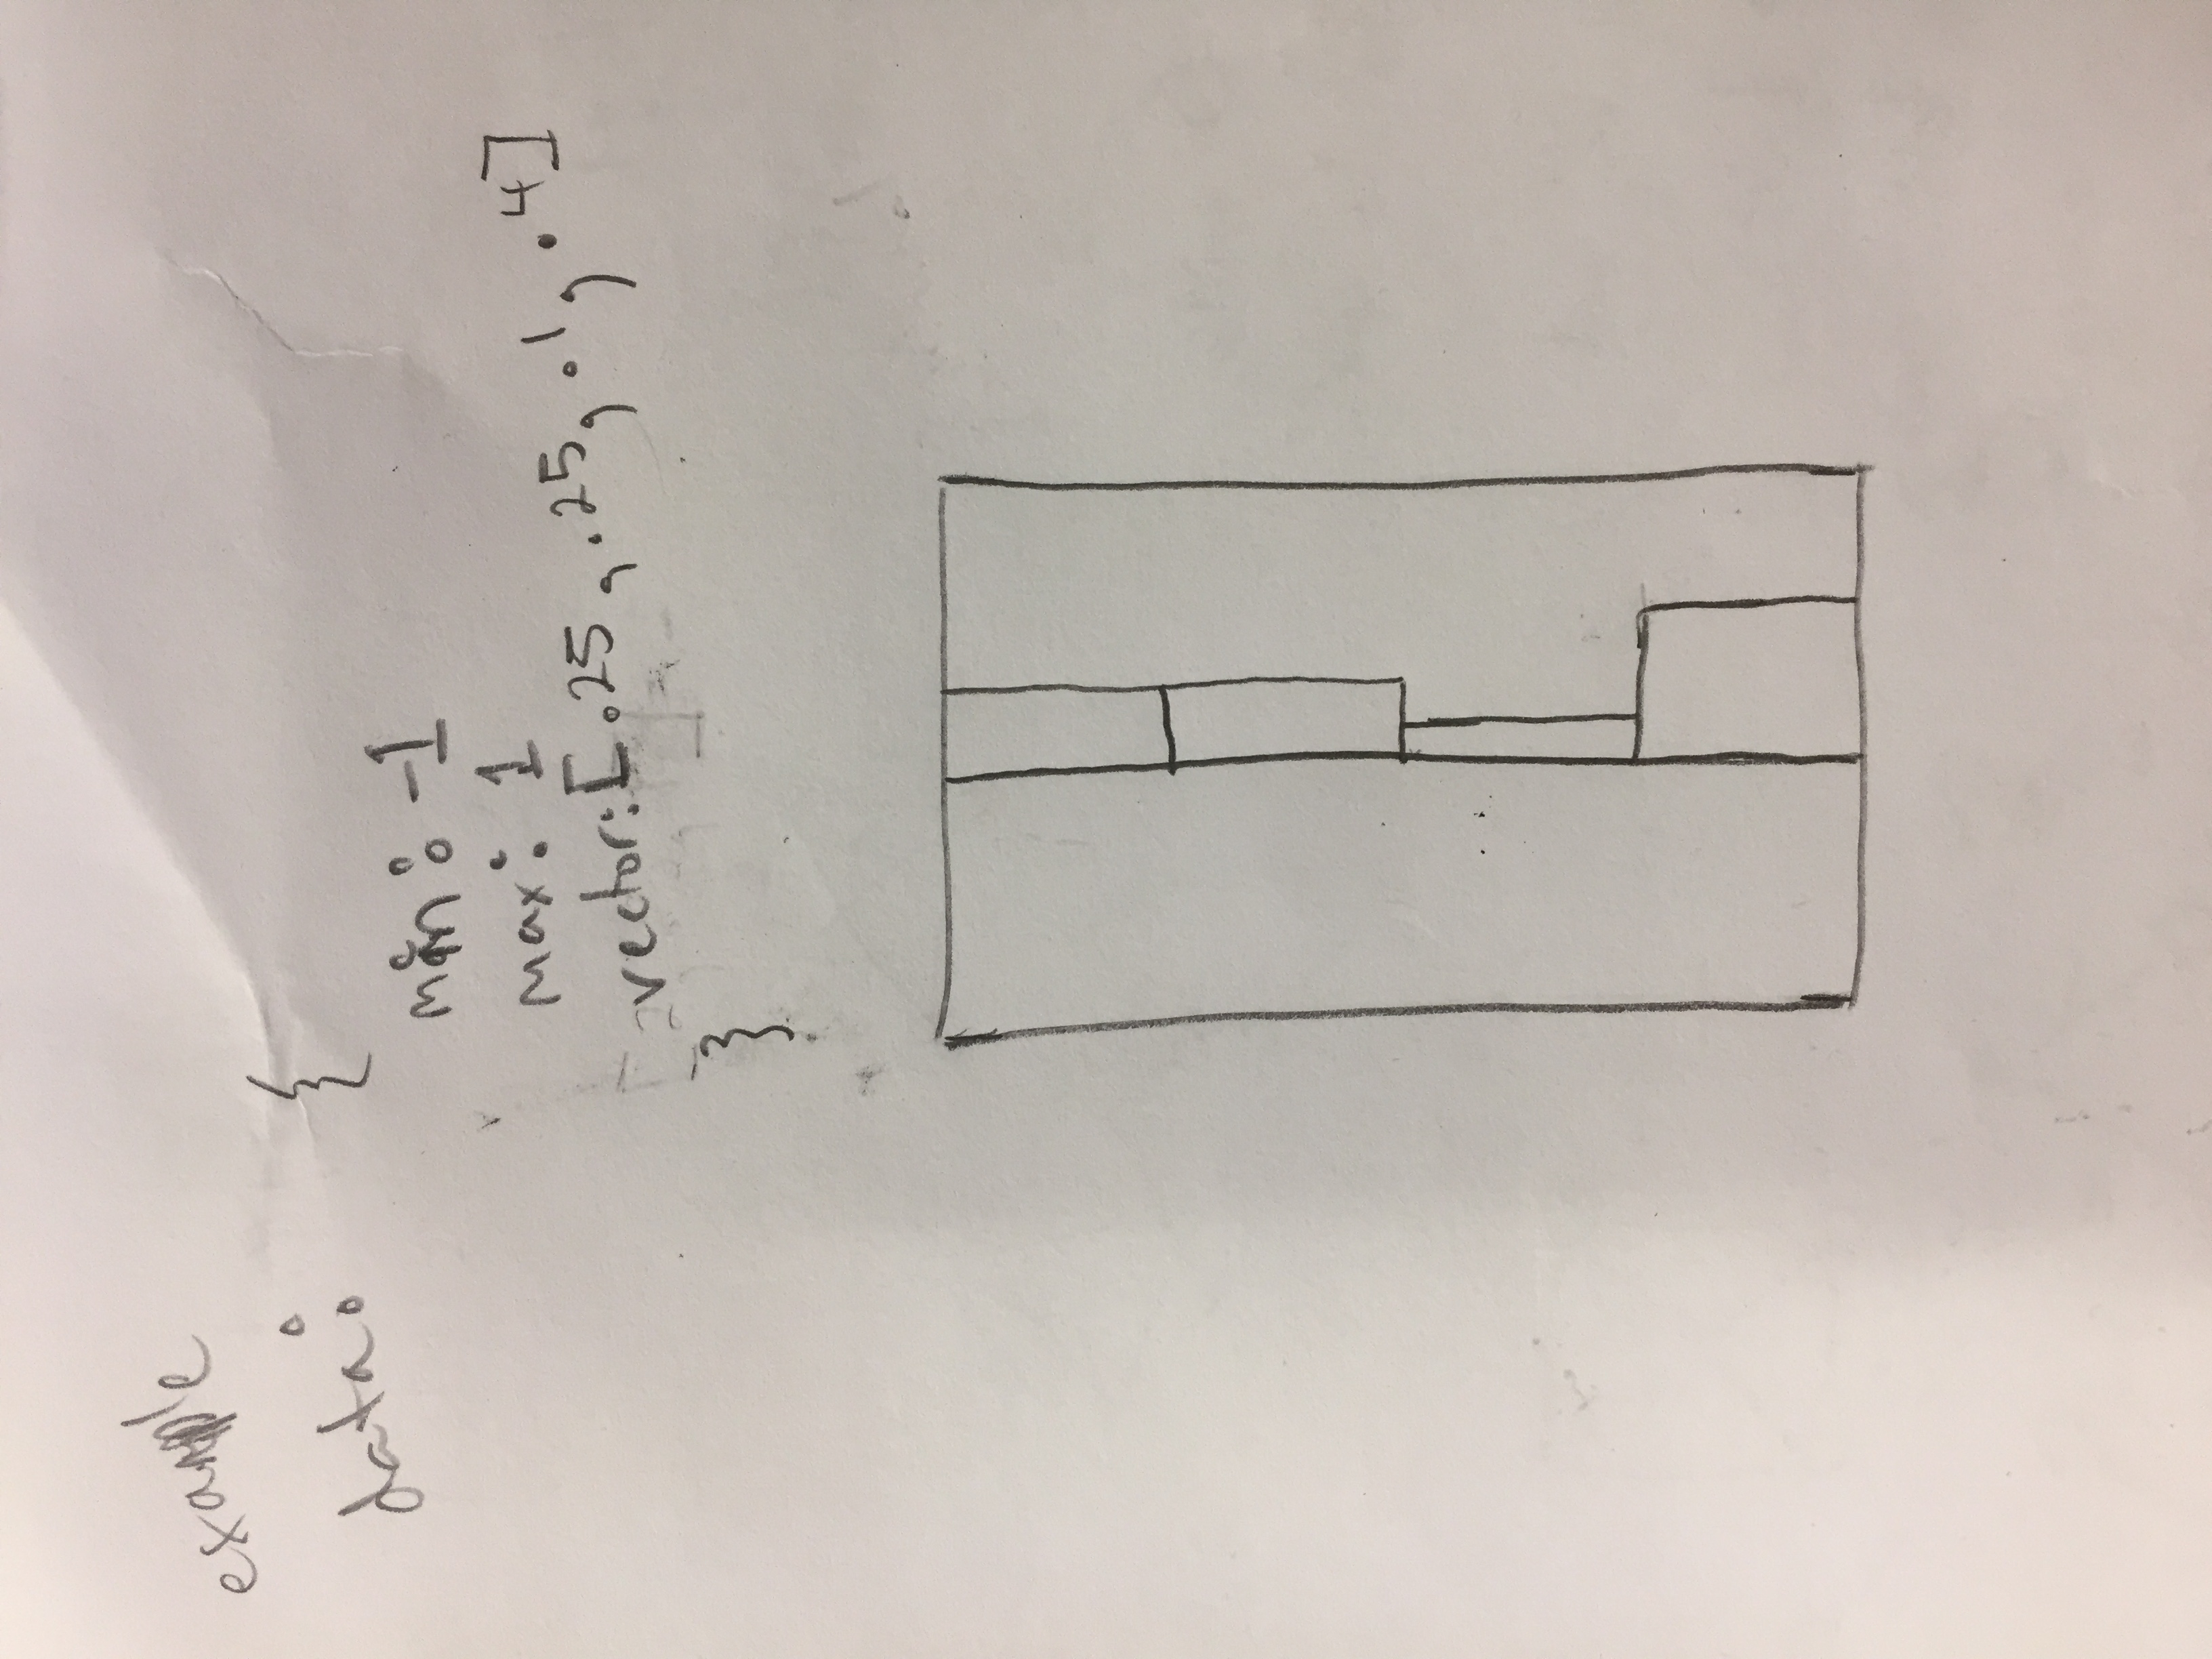 example
data:
{
min: -1
max: 1
vector: [.25, .25, .1, .4]
}